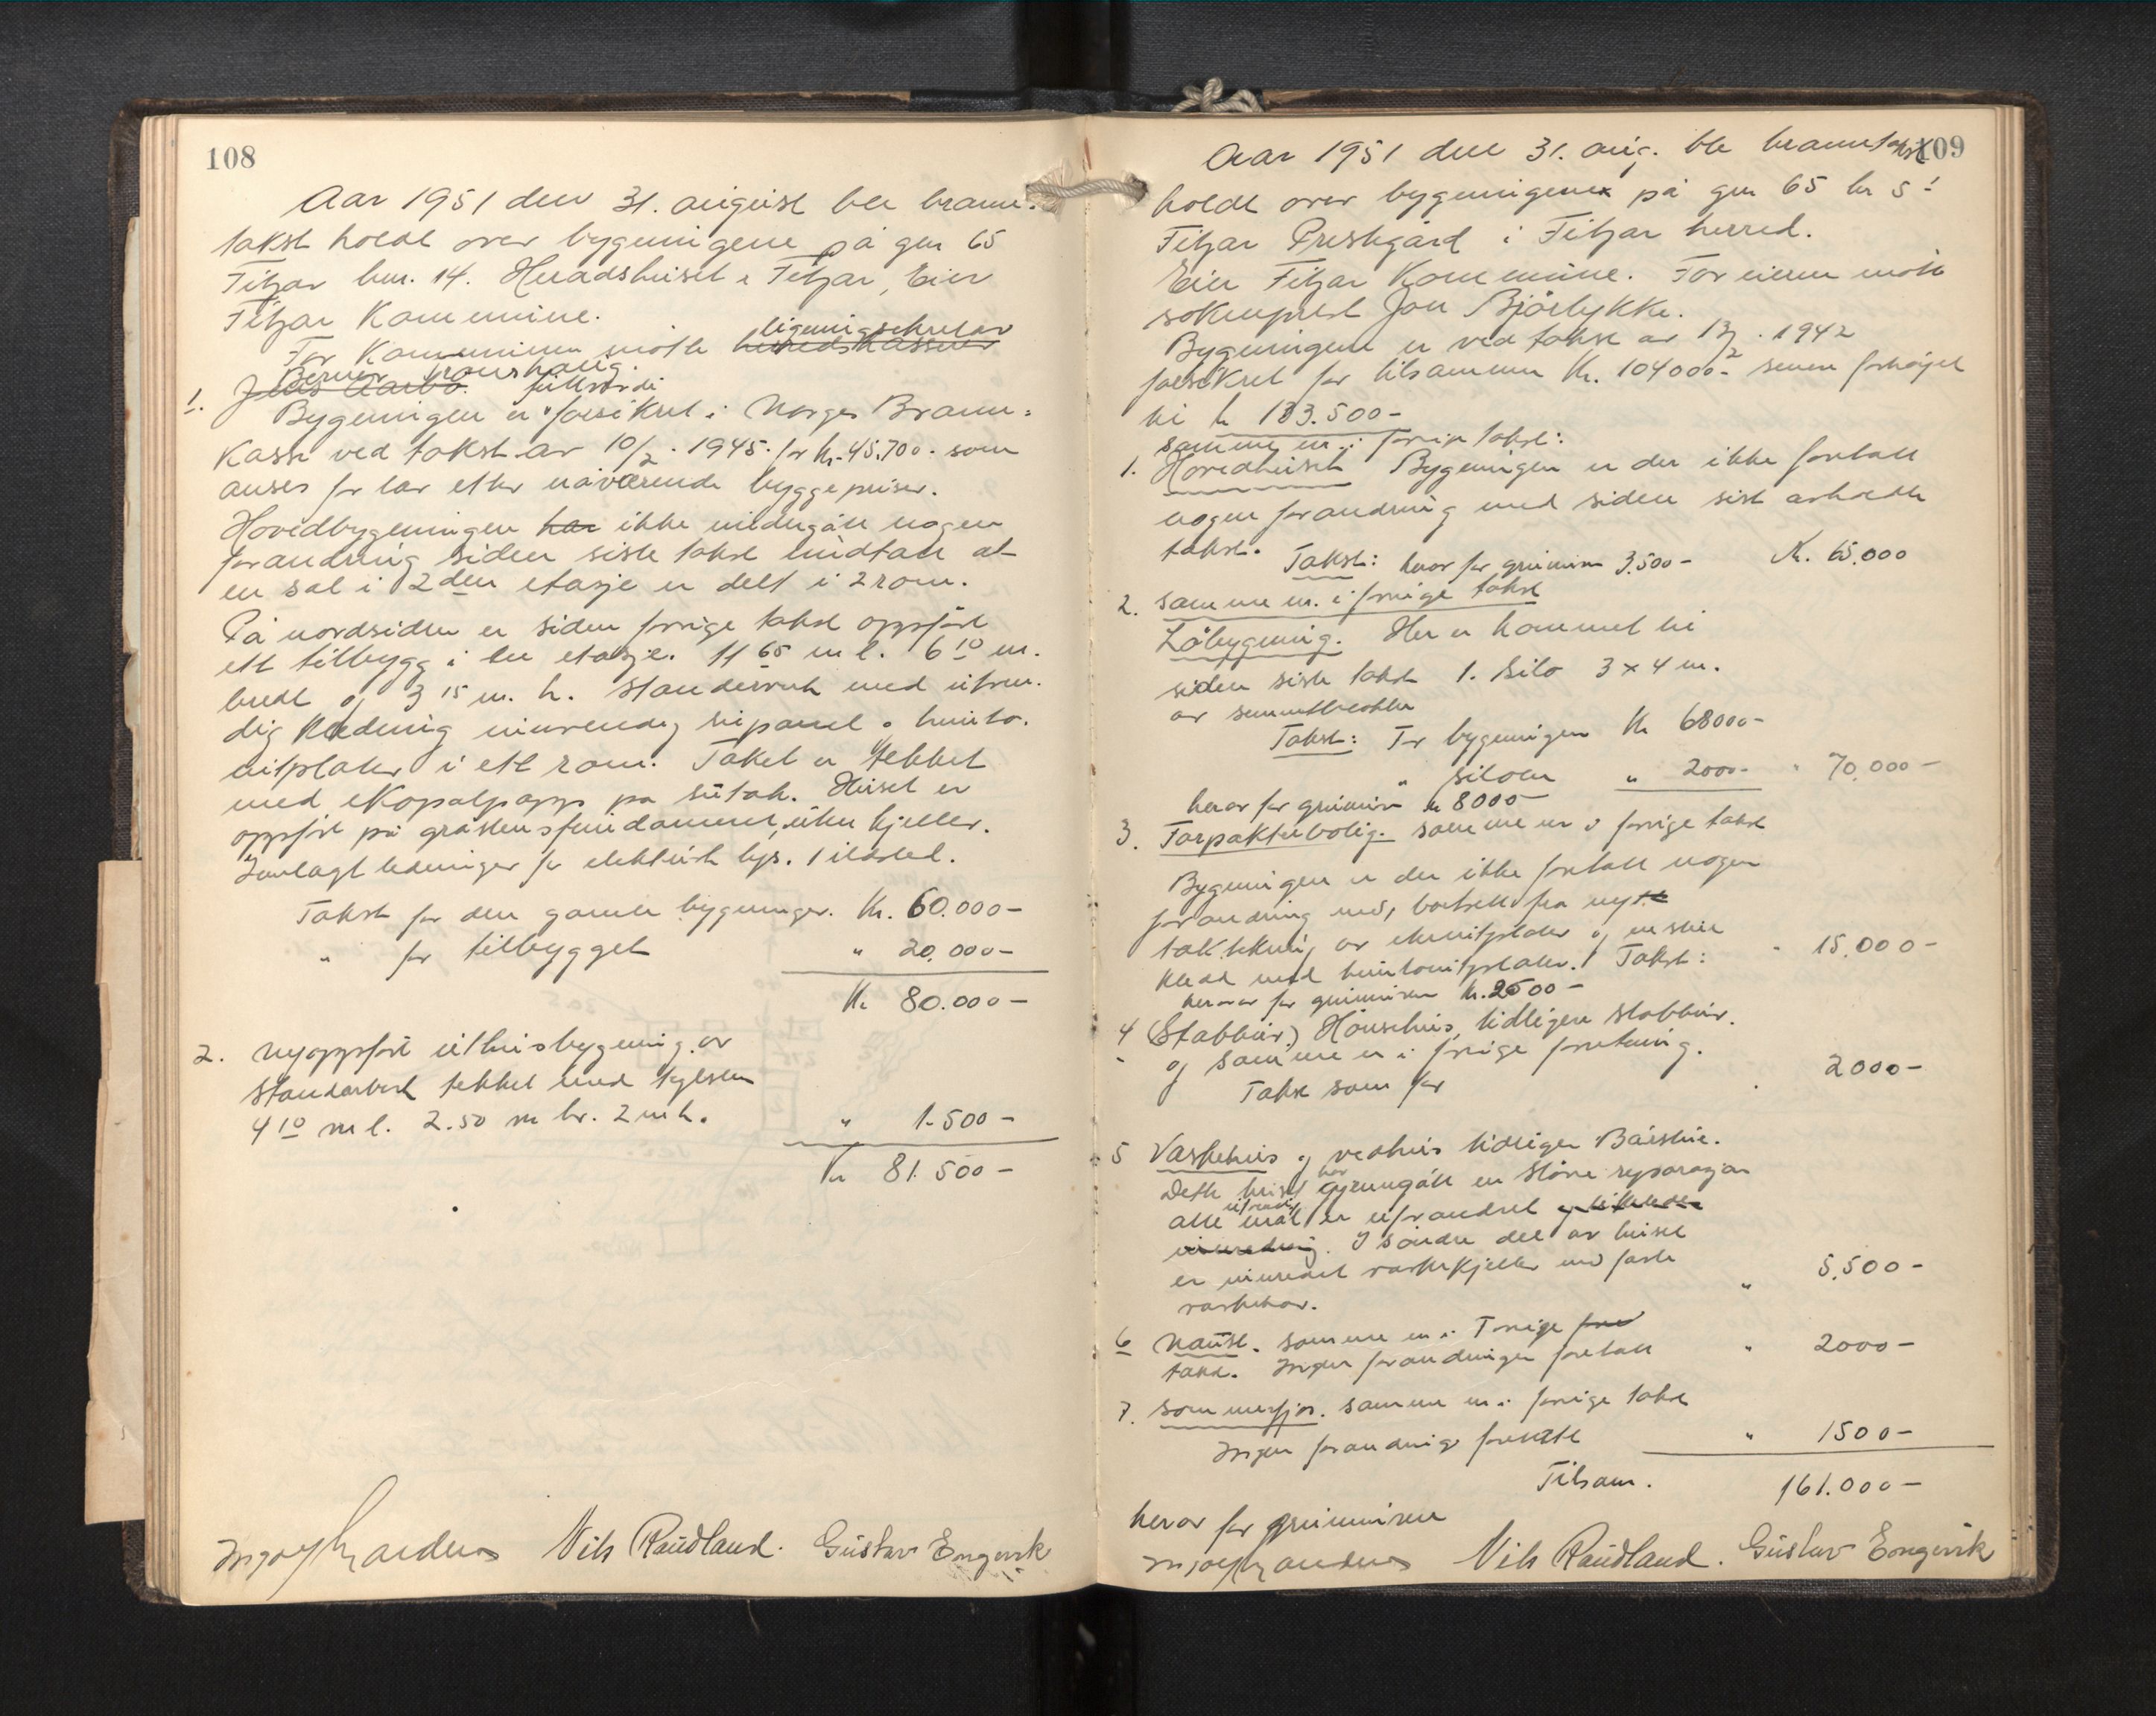 108
Aar 1951 den 31. august ble brann-
takst holdt over bygningene på gnr 65
Fitjar bnr. 14. Heradshuset i Fitjar, Eier
Fitjar Kommune.
For Kommunen møtte herredskasserer ligningssekretær
Jens Aarbø.
1. Bygningen er forsikret i Norges Brann-
kasse ved takst av 10/2 . 1945. for kr. 45.700. som
anses for lav etter nåværende byggepriser.
Hovedbygningen har ikke undergått nogen
forandring siden siste takst undtatt at
en sal i 2den etasje er delt i 2 rom.
På nordsiden er siden forrige takst oppført
ett tilbygg i en etasje. 11 65 m l. 6 10 m.
bredt og 3 15 m. h. Standerverk med utven-
dig kledning innvendig supanel o hunto-
nitplater i ett rom. Taket er tekket
med ekopalpapp på sutak. Huset er
oppført på gråstensfundament, uten kjeller.
Innlagt ledninger for elektrisk lys. 1 ildsted.
Takst for den gamle bygningen. Kr. 60.000-
" for tilbygget " 20.000-
Kr 80.000-
2. Nyoppført uthusbygning av
Standerverk tekket med teglsten
4 10 m l. 2.50 m br. 2 m h. " 1.500-
Kr 81.500-
Nils Raudland. Gustav Engevik
109
Aar 1951 den 31. aug. ble branntakst
holdt over bygningene på gnr 65 br 5!
Fitjar Prestegård i Fitjar herred.
Eier Fitjar Kommune. For eieren møtte
sokneprest Jon Bjørlykke.
Bygningene er ved takst av 13/2 . 1942
forsikret for tilsammen Kr. 104000- senere forhøjet
til kr 133.500-
samme nr. i forrige takst:
1. Hovedhuset Bygningen er der ikke foretatt
nogen forandring med siden sist avholdte
takst.
Takst: herav for grunmur 3.500- Kr. 65.000
2. samme nr. i forrige takst
Løbygning. Her er kommet til
siden siste takst 1. silo 3 x 4 m.
av sementblokker
Takst: For bygningen Kr 68000-
" siloen " 2000- " 70.000-
herav for grunmur kr 8000-
3. Forpakterbolig. samme nr i forrige takst
Bygningen er der ikke foretatt nogen
forandring med, bortsett fra ny
taktekning av eternitplater og en stue
kledd med huntonitplater. Takst: " 15.000-
herav for grunmuren kr. 2500-
4 (Stabbur) Hønsehus, tidligere stabbur.
og samme nr i forrige forretning.
Takst som før " 2000-
5 Vaskehus og vedhus tidligere Båestue.
Dette huset har gjenngått en større reparasjon
alle mål utvendig er uforandret og likeledes
innredning. I søndre del av huset
er innredet vaskekjeller med faste
vaskekar. " 5.500-
6 Naust. samme nr i Forrige
takst. Ingen forandringer foretatt " 2000-
7. Sommerfjøs. samme nr i forrige takst
Ingen forandring foretatt " 1500-
Tilsam. 161.000-
herav for grunmuren
Nils Raudland. Gustav Engevik